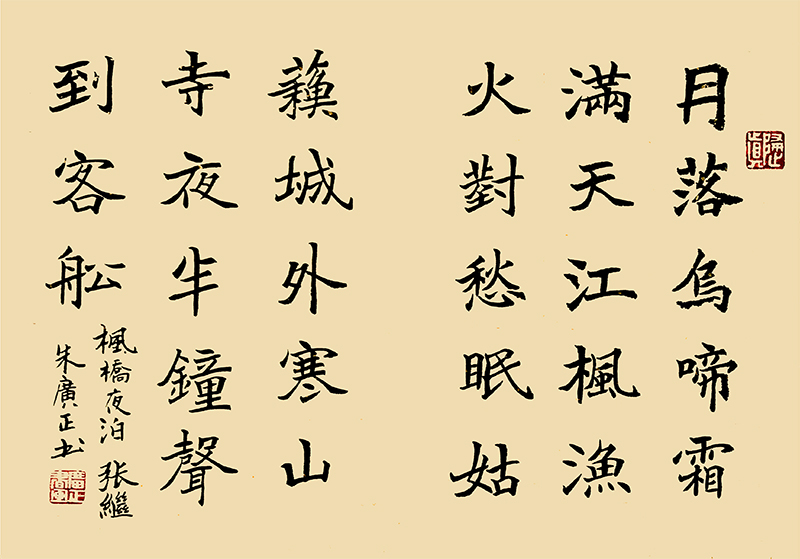 月落烏啼霜
滿天江楓漁
火對愁眠姑
蘓城外寒山
寺夜半鐘聲
到客舩
楓橋夜泊 张繼
朱廣正书